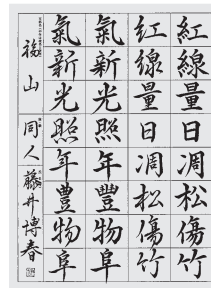 紅線量日凋松傷竹
紅線量日凋松傷竹
氣新光照年豐物阜
氣新光照年豊物阜
福山 同人 藤井博春